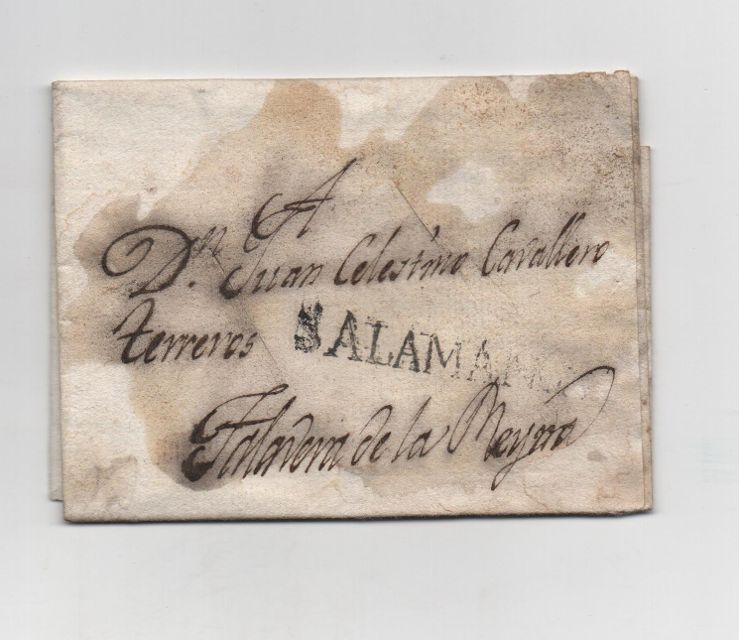 A
Dn. Juan Celestino Cavallero
terreros
SALAMAN
Talavera de la Reyna